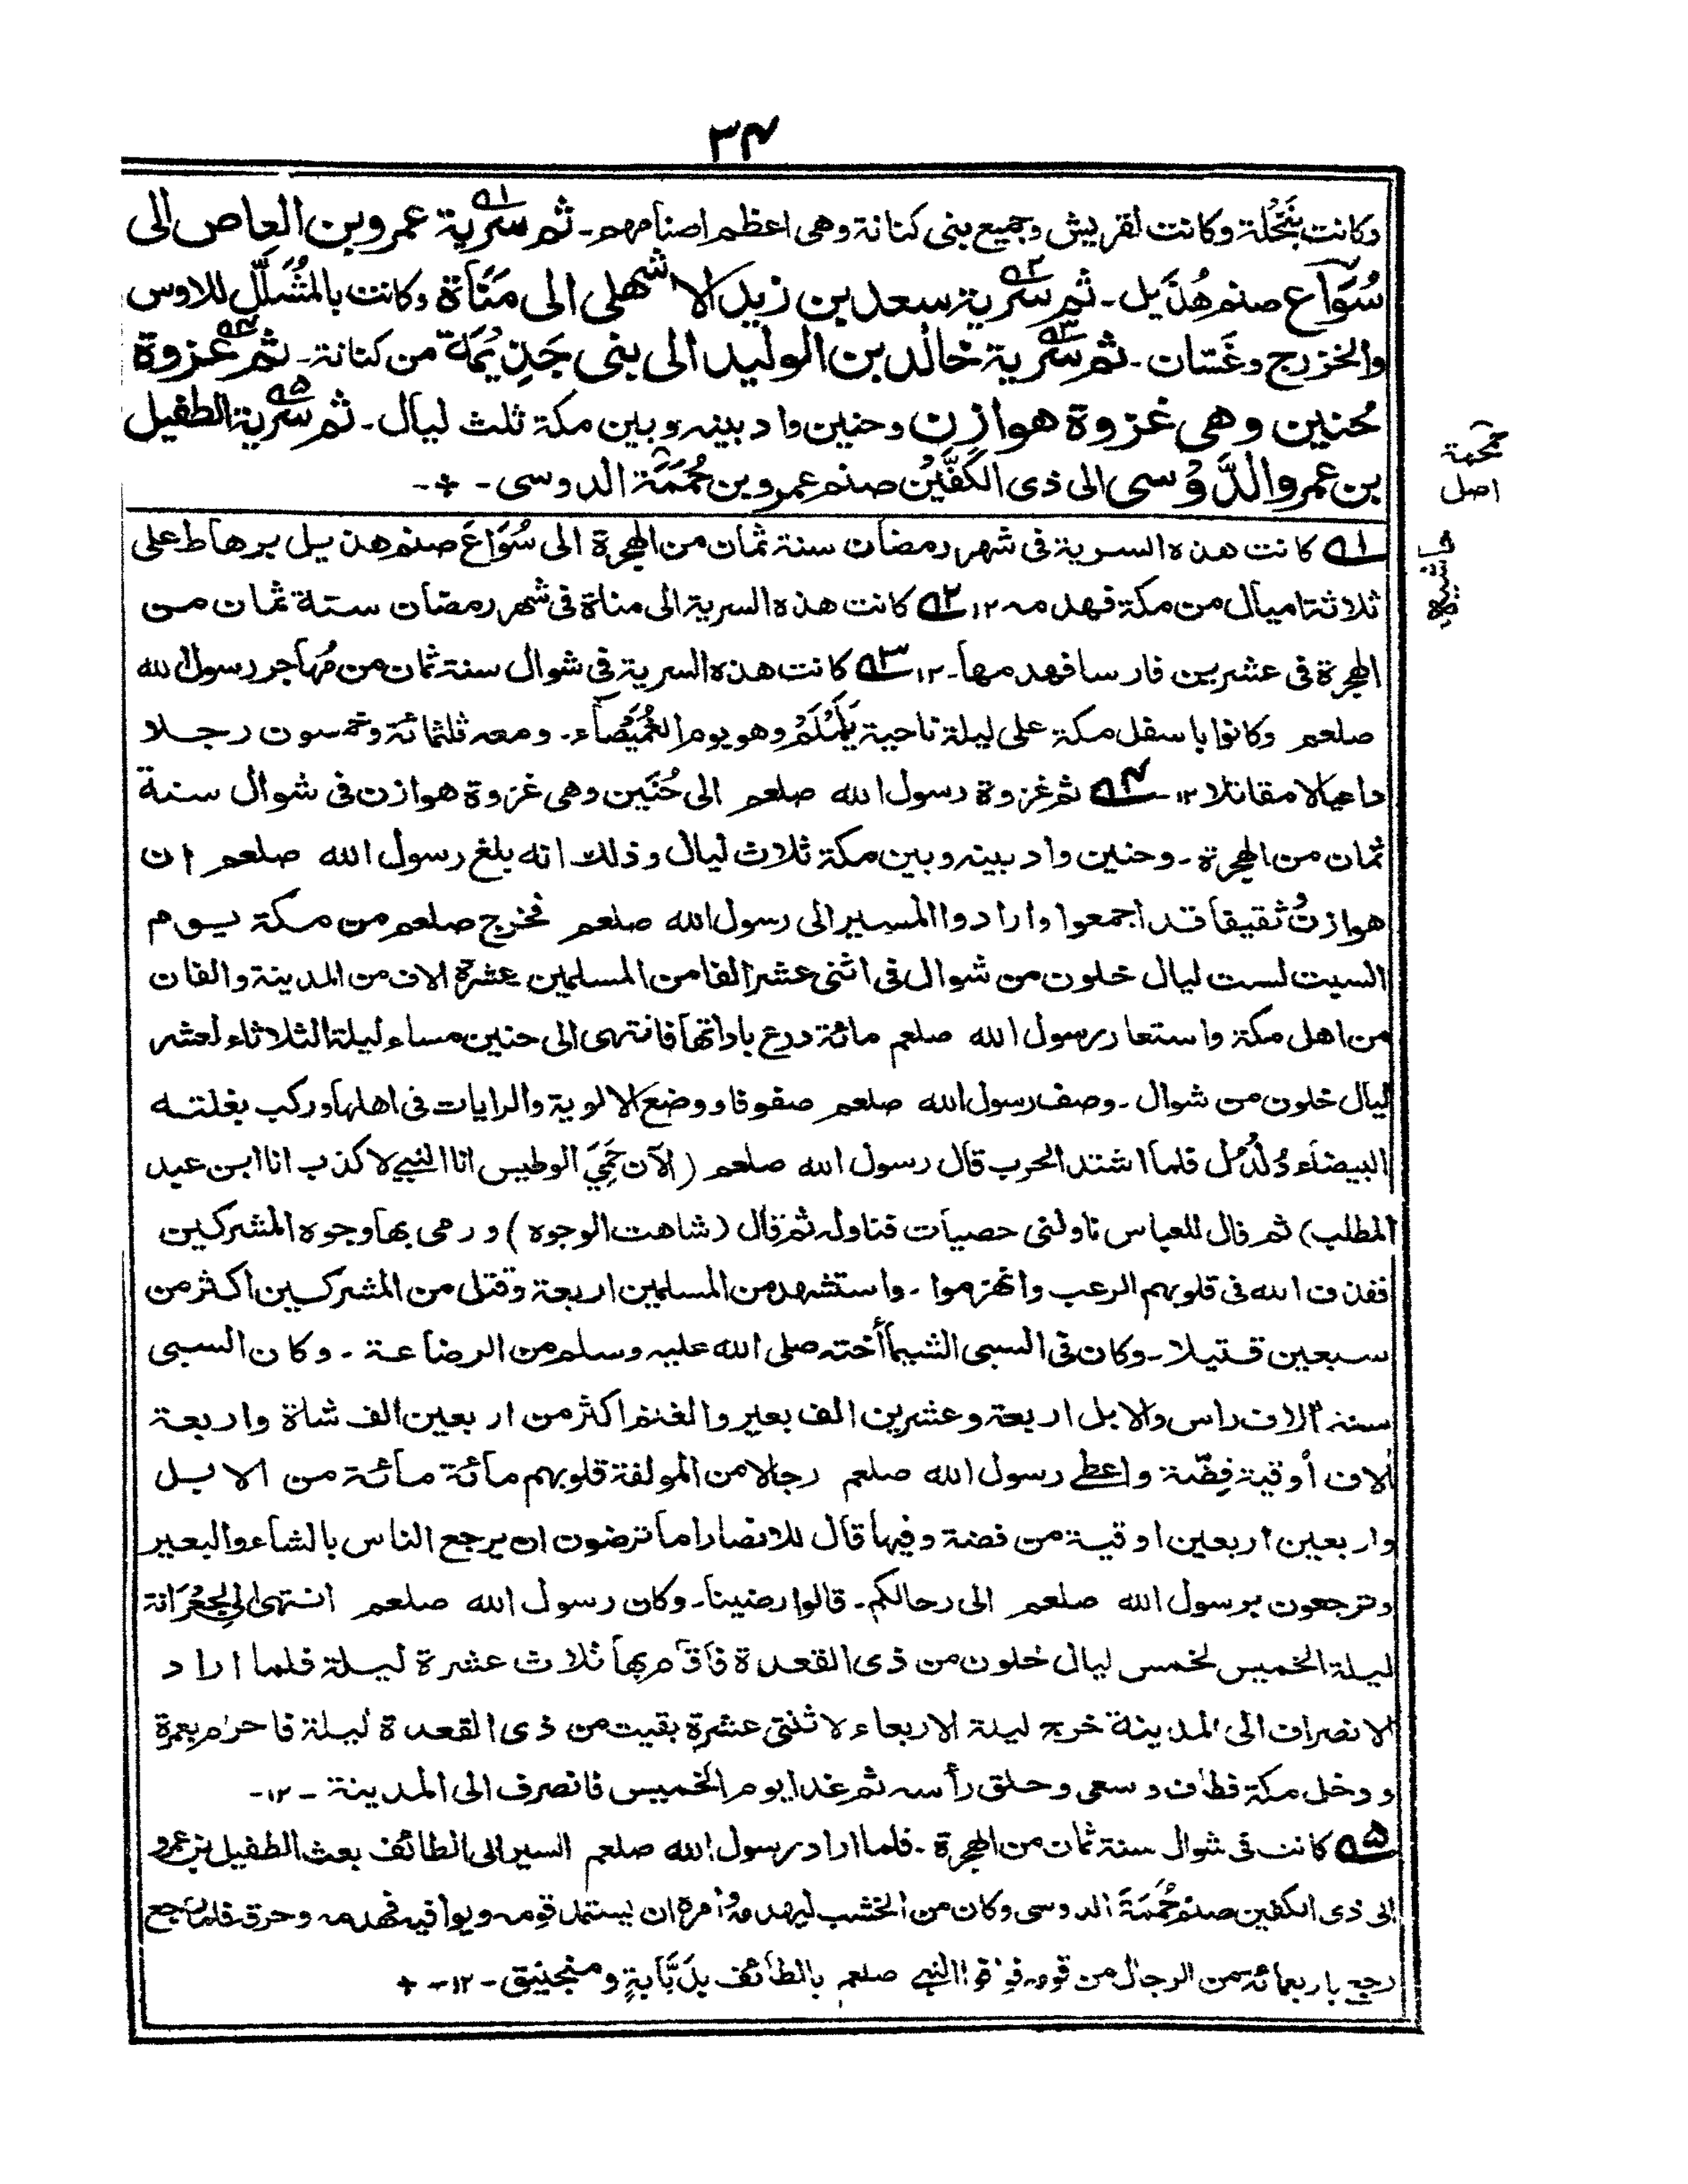 ٣٤
وكانت بنَخْلة وكانت لقريش وجميع بنى كنانة وهى اعظم اصنامهم - ثم سرية ١؎ عمرو بن العاص الى
سُوَاع صنم هُذَيل - ثم سرية ٢؎ سعد بن زيد الاشهلى الى مَنَاة وكانت بالمُشَلَّل للاوس
والخزرج وغَسّان - ثم سرية ٣؎ خالد بن الوليد الى بنى جَذِيْمَة من كنانة - ثم غزوة ٤؎
حُنين وهى غزوة هوازن وحنين واد بينه وبين مكة ثلث ليال - ثم سرية ٥؎ الطفيل
بن عمرو الدَّوْسى الى ذى الكَفَّيْن صنم عمرو بن حُمَمَة الدوسى -
حممة
اصل
حاشيه
١؎ كانت هذه السرية فى شهر رمضان سنة ثمان من الهجرة الى سُوَاعَ صنم هذيل برهاط على
ثلاثة اميال من مكة فهدمه ١٢، ٢؎ كانت هذه السرية الى مناة فى شهر رمضان ستة ثمان من
الهجرة فى عشرين فارسا فهدمها - ١٢، ٣؎ كانت هذه السرية فى شوال سنة ثمان من مُهاجر رسول الله
صلعم وكانوا باسفل مكة على ليلة ناحية يَلَمْلَمْ وهو يوم الغُمَيْصَاء - ومعه ثلثمائة وخمسون رجلا
داعيا لا مقاتلا ١٢ - ٤؎ ثم غزوة رسول الله صلعم الى حُنَين وهى غزوة هوازن فى شوال سنة
ثمان من الهجرة - وحنين واد بينه وبين مكة ثلاث ليال وذلك انه بلغ رسول الله صلعم ان
هوازنُ ثقيفا قد اجمعوا وارادوا المسير الى رسول الله صلعم فخرج صلعم من مكة يوم
السبت لست ليال خلون من شوال فى اثنى عشر الفا من المسلمين عشرة الاف من المدينة والفان
من اهل مكة واستعار رسول الله صلعم مائة درع باداتها فانتهى الى حنين مساء ليلة الثلاثاء لعشر
ليال خلون من شوال - وصف رسول الله صلعم صفوفا ووضع الالوية والرايات فى اهلها وركب بغلته
البيضاء دُلْدُل فلما اشتد الحرب قال رسول الله صلعم (الآن حَمِيَ الوطيس انا النبي لا كذب انا ابن عبد
المطلب) ثم قال للعباس ناولنى حصيات فناوله ثم قال (شاهت الوجوه) ورمى بها وجوه المشركين
فقذف الله فى قلوبهم الرعب وانهزموا - واستشهد من المسلمين اربعة وقتل من المشركين اكثر من
سبعين قتيلا - وكان فى السبى الشيما أخته صلى الله عليه وسلم من الرضاعة - وكان السبى
ستة آلاف راس والابل اربعة وعشرين الف بعير والغنم اكثر من اربعين الف شاة واربعة
آلاف أوقية فِضّة واعطى رسول الله صلعم رجالا من المولفة قلوبهم مائة مائة من الابل
واربعين اربعين اوقية من فضة وفيها قال للانصار اما ترضون ان يرجع الناس بالشاء والبعير
وترجعون برسول الله صلعم الى رحالكم - قالوا رضينا - وكان رسول الله صلعم انتهى الى الجِعْرَانة
ليلة الخميس لخمس ليال خلون من ذى القعدة فاقام بها ثلاث عشرة ليلة فلما اراد
الانصراف الى المدينة خرج ليلة الاربعاء لاثنتى عشرة بقيت من ذى القعدة ليلة فاحرم بعمرة
ودخل مكة فطاف وسعى وحلق رأسه ثم غدا يوم الخميس فانصرف الى المدينة - ١٢ -
٥؎ كانت فى شوال سنة ثمان من الهجرة - فلما اراد رسول الله صلعم السير الى الطائف بعث الطفيل بن عمرو
الى ذى الكفين صنم حُمَمَةَ الدوسى وكان من الخشب ليهدمه وامره ان يستمد قومه ويوافيه فهدمه وحرق فلما رجع
رجع باربعمائة من الرجال من قومه فوافوا النبي صلعم بالطائف بدَبَّابةٍ ومنجنيق - ١٢ -